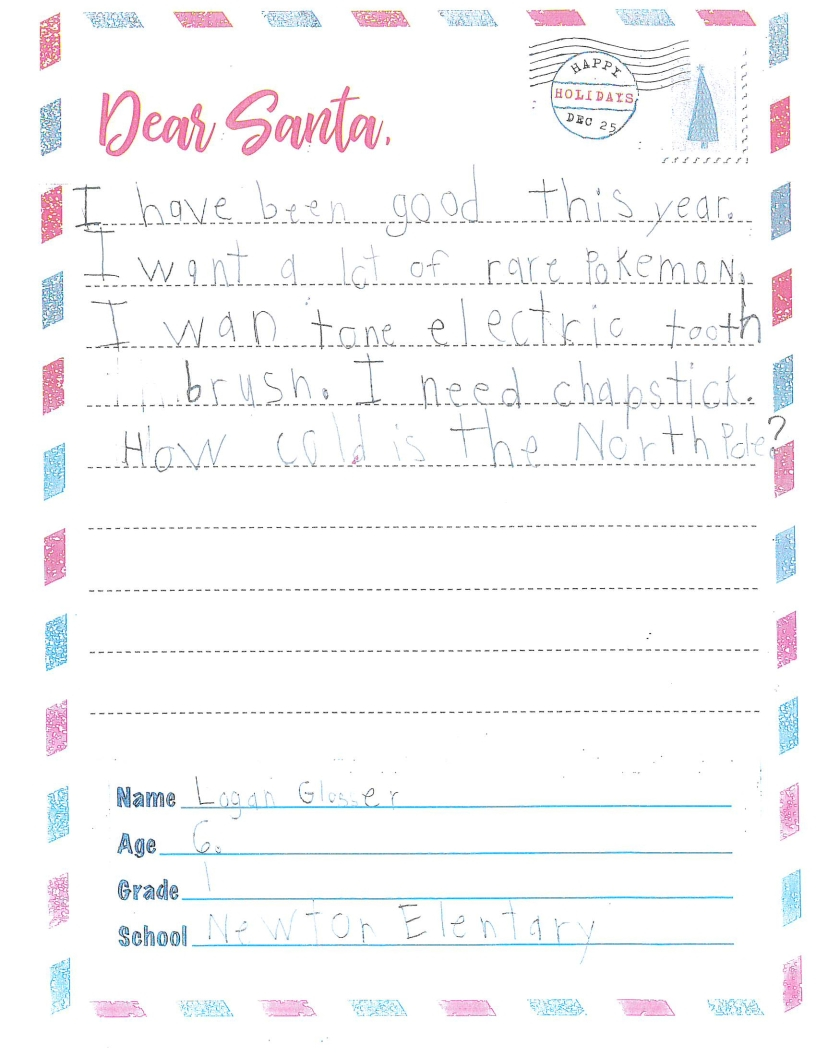 HAPPY
HOLIDAYS
DEC 25
Dear Santa,
I have been good this year.
I want a lot of rare Pokemon.
I wan tone electric tooth
brush. I need chapstick.
How cold is the North Pole?
Name Logan Glosser
Age 6.
Grade 1
School Newton Elentary